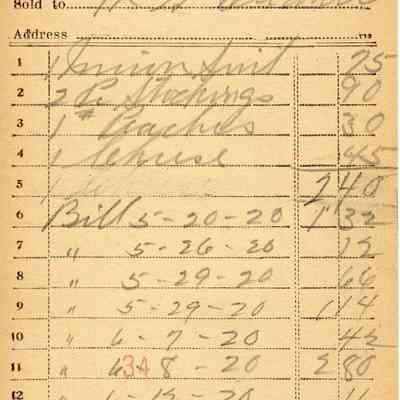 Sold to
Address
1 1 Union Suit 75
2 2 P. Stockings 90
3 1 # Peaches 30
4 1 Cheese 45
5 2 40
6 Bill 5-20-20 1 32
7 " 5-26-20 12
8 " 5-29-20 66
9 " 5-29-20 1 14
10 " 6-7-20 42
11 " 6-8-20 2 80
34
12 " 6-12-20